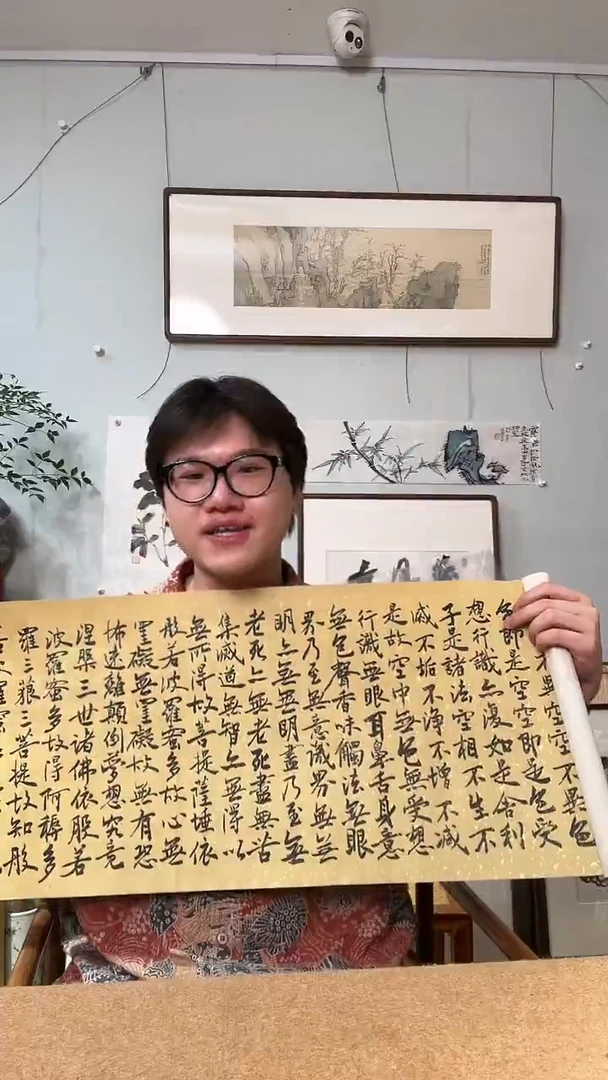 不異空空不異色
色即是空空即是色受
想行識亦復如是舍利
子是諸法空相不生不
滅不垢不淨不增不減
是故空中無色無受想
行識無眼耳鼻舌身意
無色聲香味觸法無眼
界乃至無意識界無無
明亦無無明盡乃至無
老死亦無老死盡無苦
集滅道無智亦無得以
無所得故菩提薩埵依
般若波羅蜜多故心無
罣礙無罣礙故無有恐
怖遠離顛倒夢想究竟
涅槃三世諸佛依般若
波羅蜜多故得阿耨多
羅三藐三菩提故知般